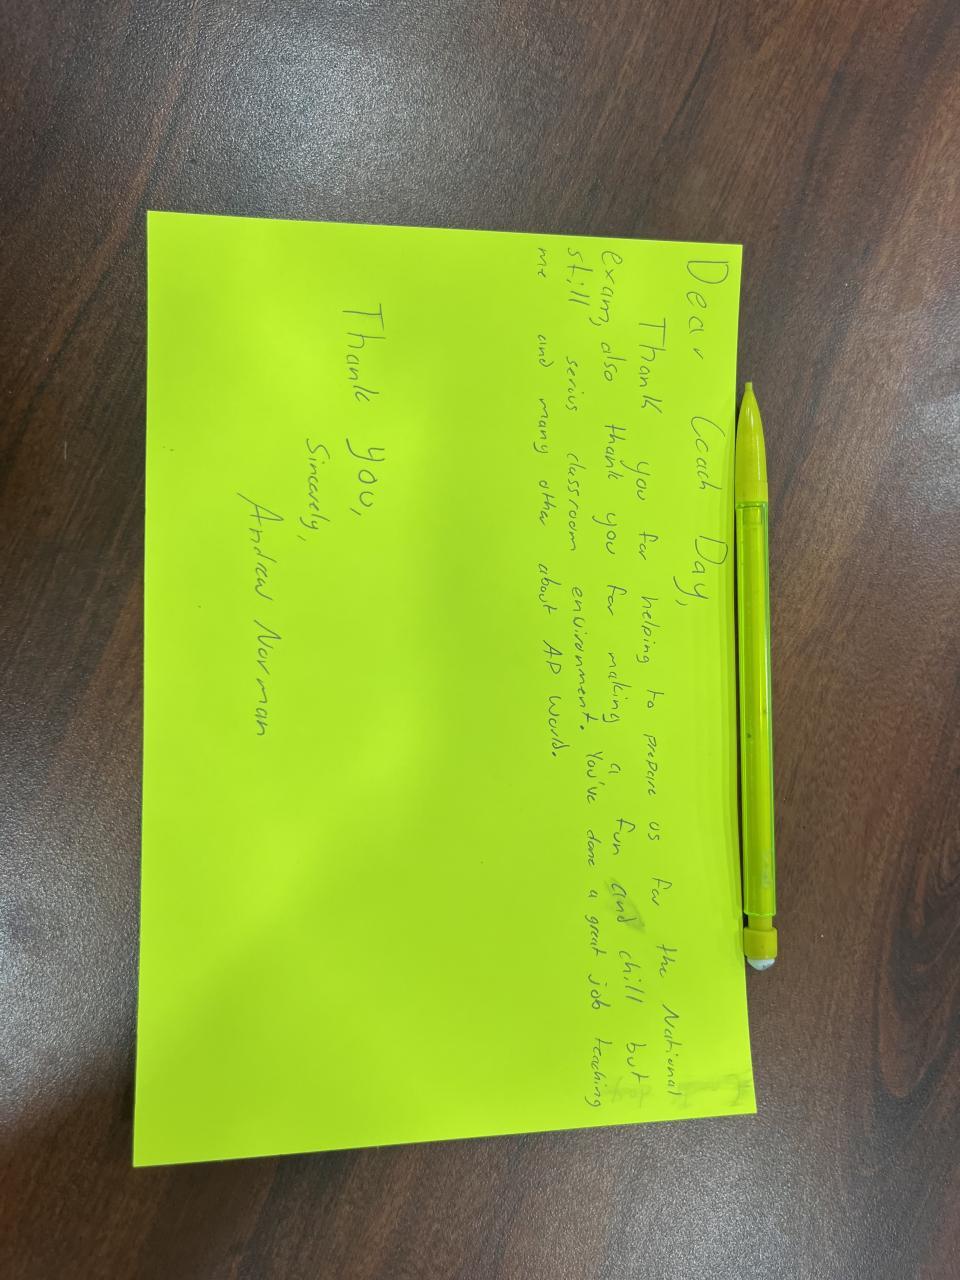 Dear Coach Day,
Thank you for helping to prepare us for the National
exam, also thank you for making a fun and chill but
still serius classroom environment. You've done a great job teaching
me and many other about AP World.
Thank you,
Sincerely,
Andrew Norman